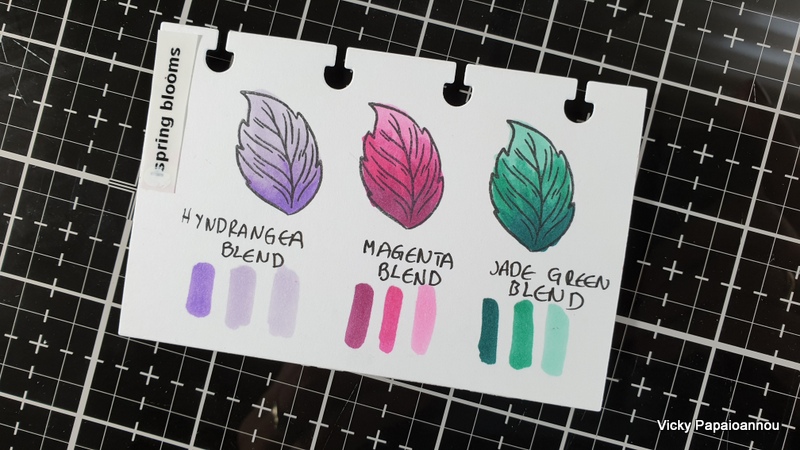 spring blooms
HYNDRANGEA
BLEND
MAGENTA
BLEND
JADE GREEN
BLEND
Vicky Papaioannou